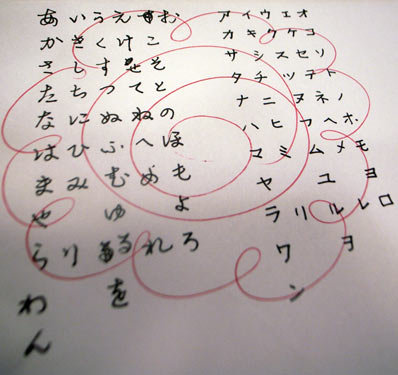 あいうえお
かきくけこ
さしすせそ
たちつてと
なにぬねの
はひふへほ
まみむめも
やゆよ
らりるれろ
わを
ん
アイウエオ
カキクケコ
サシスセソ
タチツテト
ナニヌネノ
ハヒフヘホ
マミムメモ
ヤユヨ
ラリルレロ
ワヲ
ン